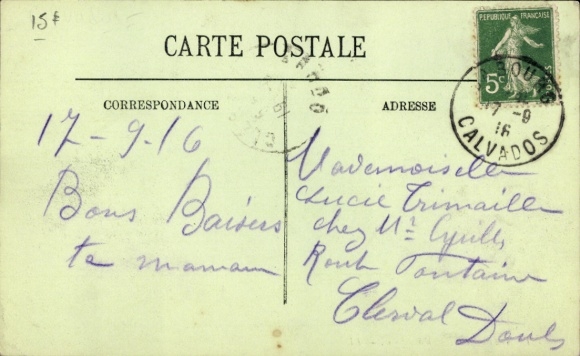 15f
CARTE POSTALE
REPUBLIQUE FRANÇAISE
5c
7-9
16
CALVADOS
CORRESPONDANCE
ADRESSE
17-9-16
Bons Baisers
ta maman
Mademoiselle
Lucie Trimaille
chez Mr
Fontaine
Clerval Doubs